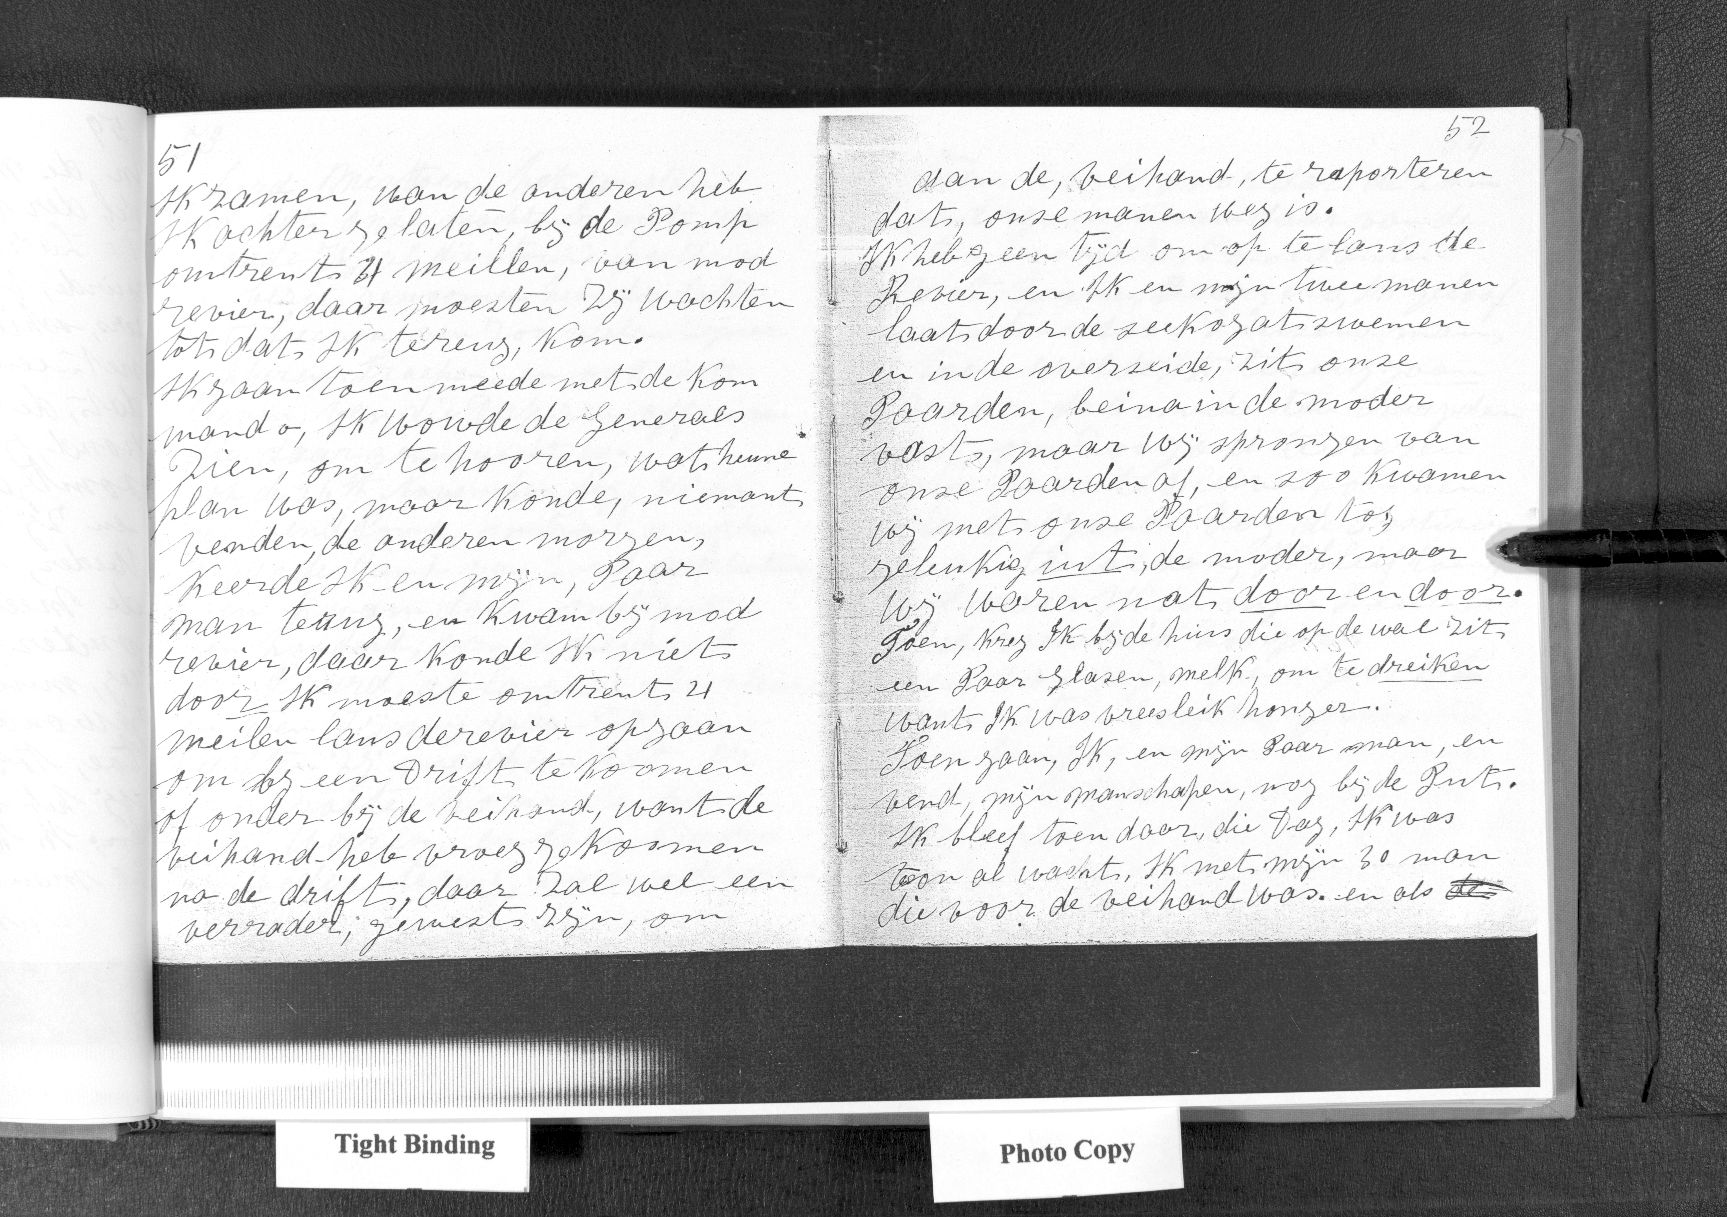 51
Ik zamen, wan de anderen heb
Ik achter gelaten, bij de Pomp
omtrent 4 meillen, van mod
revier, daar moesten Zij wachten
tot dat Ik tereug, kom.
Ik gaan toen meede met de kom
mando, Ik wowde de Generaes
Zien, om te hooren, wat heune
plan was, maar konde, niemant
venden, de anderen morgen,
keerde Ik en mijn, Paar
man terug, en kwam bij mod
revier, daar konde Ik niet
door Ik moeste omtrent 4
meilen lans de revier op gaan
om by een Drift te koomen
of onder bij de veihand, want de
veihand heb vroeg gekoomen
na de drift, daar Zal wel een
verrader, geweest zijn, om
52
aan de, veihand, te raporteren
dat, onse manen weg is.
Ik heb geen tijd om op te lans de
Revier, en Ik en mijn twee manen
laat door de seekogat swemen
en in de overseide, zit onze
Paarden, beina in de moder
vast, maar wij sprongen van
onse Paarden af, en soo kwamen
wij met onse Paarden tog
geleukig uit, de moder, maar
wij waren nat door en door.
Toen, kreg Ik bijde huis die op de wal zit
een Paar glasen, melk, om te dreiken
want Ik was vreesleik honger.
Toen gaan, Ik, en mijn Paar man, en
vend, mijn manschapen, nog bij de Put.
Ik bleef toen daar, die Dag, Ik was
toon al wacht, Ik met mijn 30 man
die voor de veihand was. en als de
Tight Binding
Photo Copy